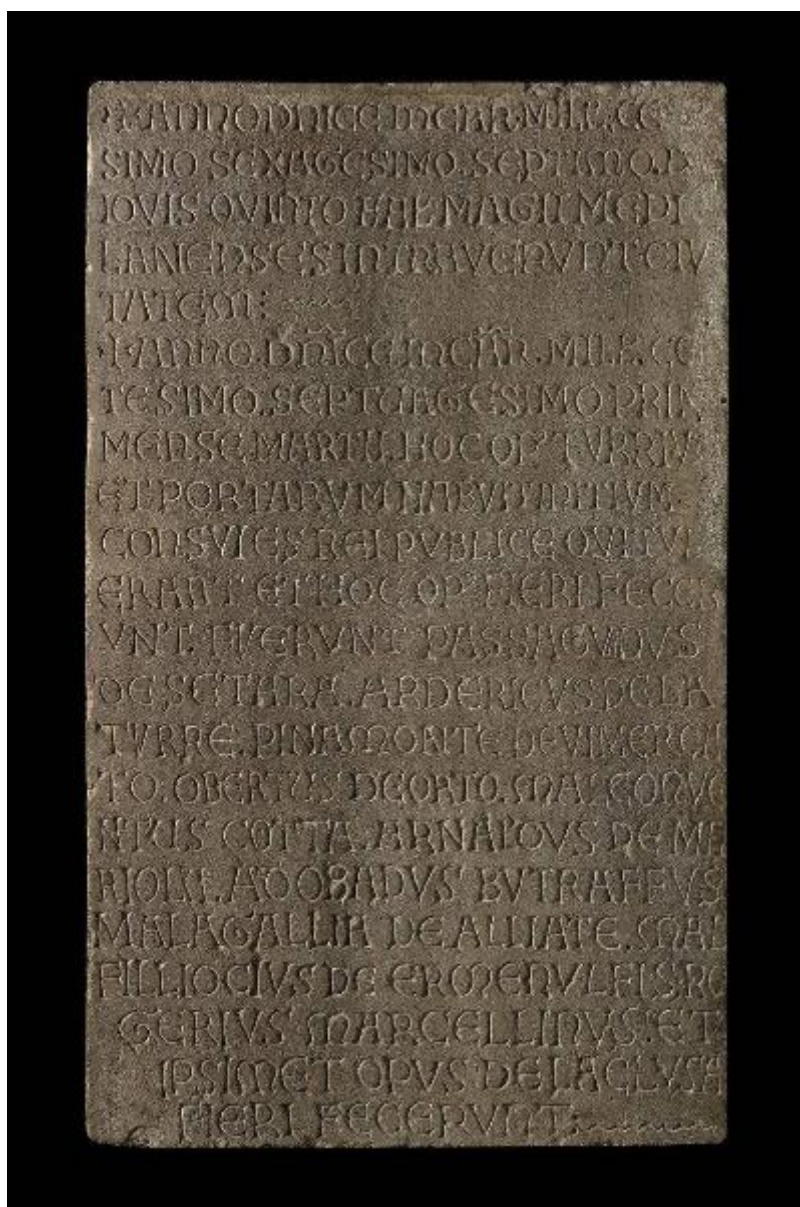 ✝ ANNO DNICE INCHAR. MILL. CE
SIMO SEXAGESIMO. SEPTIMO. D
IOVIS QVINTO KAL MAGII MEDI
LANENSES INTRAVERVNT CIV
TATEM:
✝ ANNO. DNICE INCHAR. MILL. CE
TESIMO. SEPTUAGESIMO PRIM
MENSE MARTII. HOC OP' TVRRIV
ET PORTARVM HABVIT INITIVM.
CONSVLES REI PVBLICE QVI TVN
ERANT ET HOC OP' FIERI FECER
VNT. FVERVNT PASSAGVADVS
DE SETARA. ARDERICVS DE LA
TVRRE. PINAMONTE DE VIMERCA
TO. OBERTUS DE ORTO. MALCONVE
NTUS COTTA. ARNALDVS DE MA
RIOLA. ADOBADVS BVTRAFFVS
MALAGALLIA DE ALLIATE. MAL
FILLIOCIVS DE ERMENVLFIS. RO
GERIVS MARCELLINVS. ET
IPSIMET OPVS DE LA CLVSA
FIERI FECERVNT: